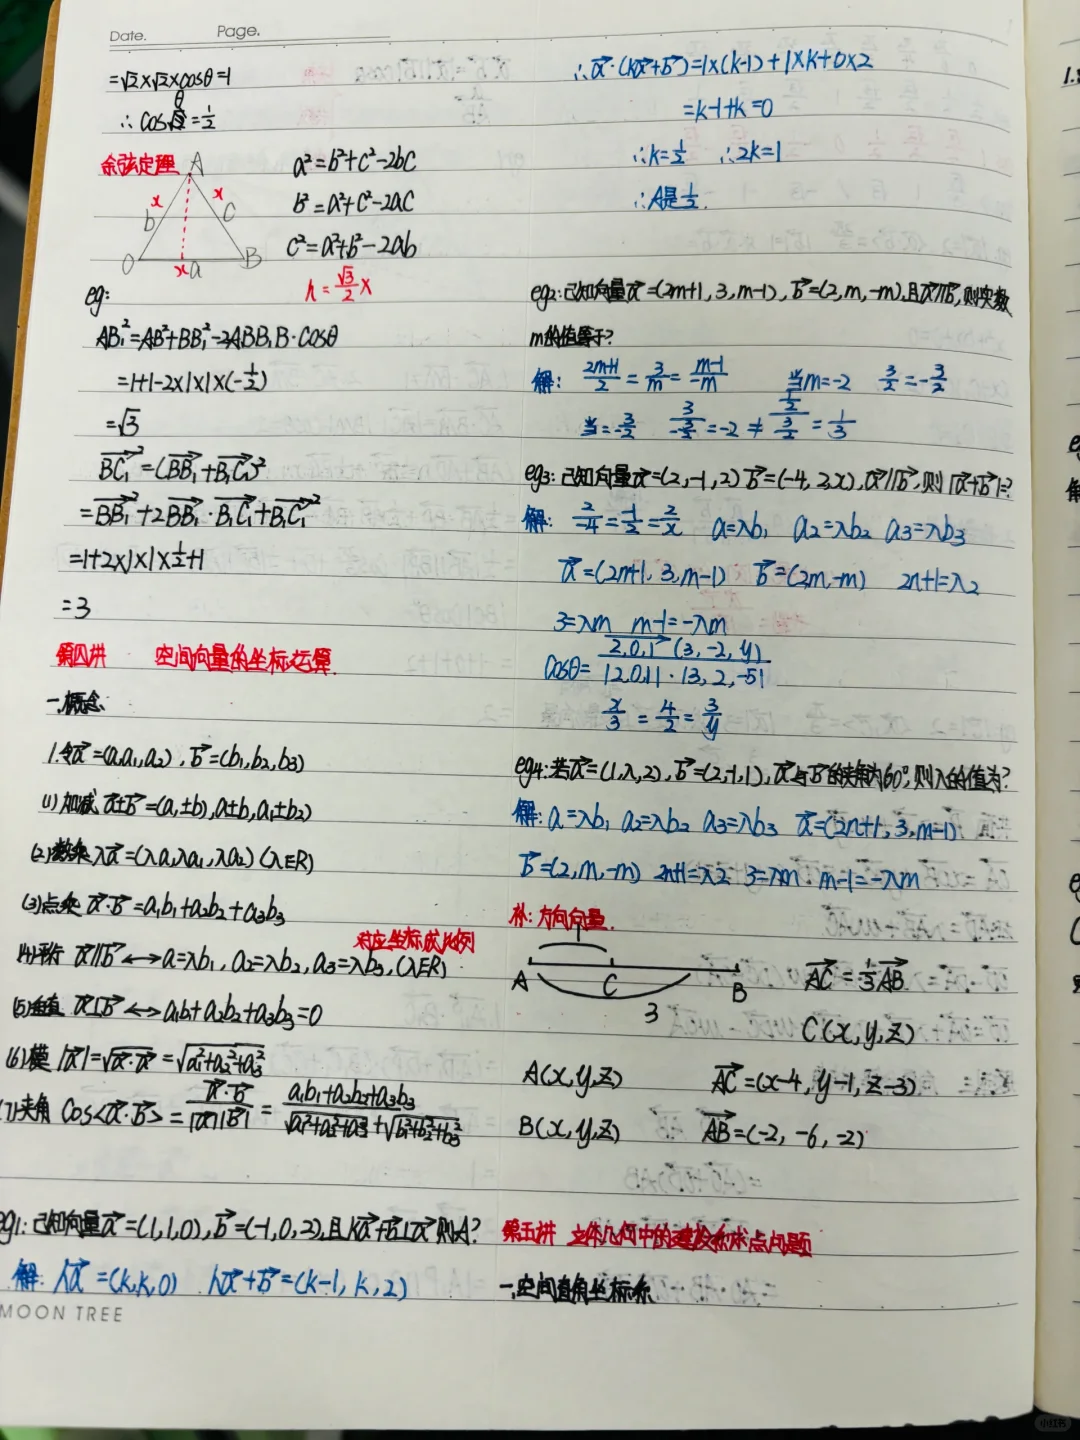 Date.
Page.
=√2×√2×cosθ=1
θ
∴ cos =1/2
余弦定理
A
x
x
b
C
O
x
a
B
a²=b²+c²-2bc
b²=a²+c²-2ac
c²=a²+b²-2ab
h=√3/2 x
eg:
AB₁²=AB²+BB₁²-2ABB₁B·cosθ
=1+1-2×1×1×(-1/2)
=√3
BC₁²=(BB₁+B₁C₁)²
=BB₁²+2BB₁·B₁C₁+B₁C₁²
=1+2×1×1×1/2+1
=3
第四讲 空间向量的坐标运算
一.概念
1.令a=(a,a₁,a₂),b=(b₁,b₂,b₃)
(1)加减 a±b=(a,±b),a±b,a₁±b₂)
(2)数乘 λa=(λa,λa₁,λa₂)(λ∈R)
(3)点乘 a·b=a₁b₁+a₂b₂+a₃b₃
对应坐标成比例
(4)平行 a∥b↔a=λb₁,a₂=λb₂,a₃=λb₃,(λ∈R)
(5)垂直 a⊥b↔a₁b₁+a₂b₂+a₃b₃=0
(6)模 |a|=√a·a=√a₁²+a₂²+a₃²
(7)夹角 cos<a·b>=a·b/|a||b|=a₁b₁+a₂b₂+a₃b₃/√a₁²+a₂²+a₃²+√b₁²+b₂²+b₃²
eg1:已知向量a=(1,1,0),b=(-1,0,2),且ka+b⊥a则A?
解: ka=(k,k,0) ka+b=(k-1,k,2)
MOON TREE
∴a·(ka+b)=1×(k-1)+1×k+0×2
=k-1+k=0
∴k=1/2 ∴2k=1
∴A是1/2.
eg2:已知向量a=(2m+1,3,m-1),b=(2,m,-m),且a∥b,则实数
m的值等于?
解: 2m+1/2=3/m=m-1/-m 当m=-2 3/2=-3/2
当=-3/2 3/-3/2=-2≠1/2/3/2=1/3
eg3:已知向量a=(2,-1,2)b=(-4,2,x),a∥b,则|a+b|=?
解: 2/-4=1/2=2/x a=λb₁ a₂=λb₂ a₃=λb₃
a=(2m+1,3,m-1) b=(2m,-m) 2n+1=λ2
3=λm m-1=-λm
cosθ=2,0,1 (3,-2,y)/|2,0,1|·|3,2,-5|
x/3=4/2=3/y
eg4:若a=(1,λ,2),b=(2,-1,1),a与b的夹角为60°,则λ的值为?
解:a=λb₁ a₂=λb₂ a₃=λb₃ a=(2n+1,3,m-1)
b=(2,m,-m) 2n+1=λ2 3=λm m-1=-λm
补:方向向量.
1
A
C
B
3
AC=1/3AB
C(x,y,z)
A(x,y,z) AC=(x-4,y-1,z-3)
B(x,y,z) AB=(-2,-6,-2)
第五讲 立体几何中的建 点问题
一.空间直角坐标系